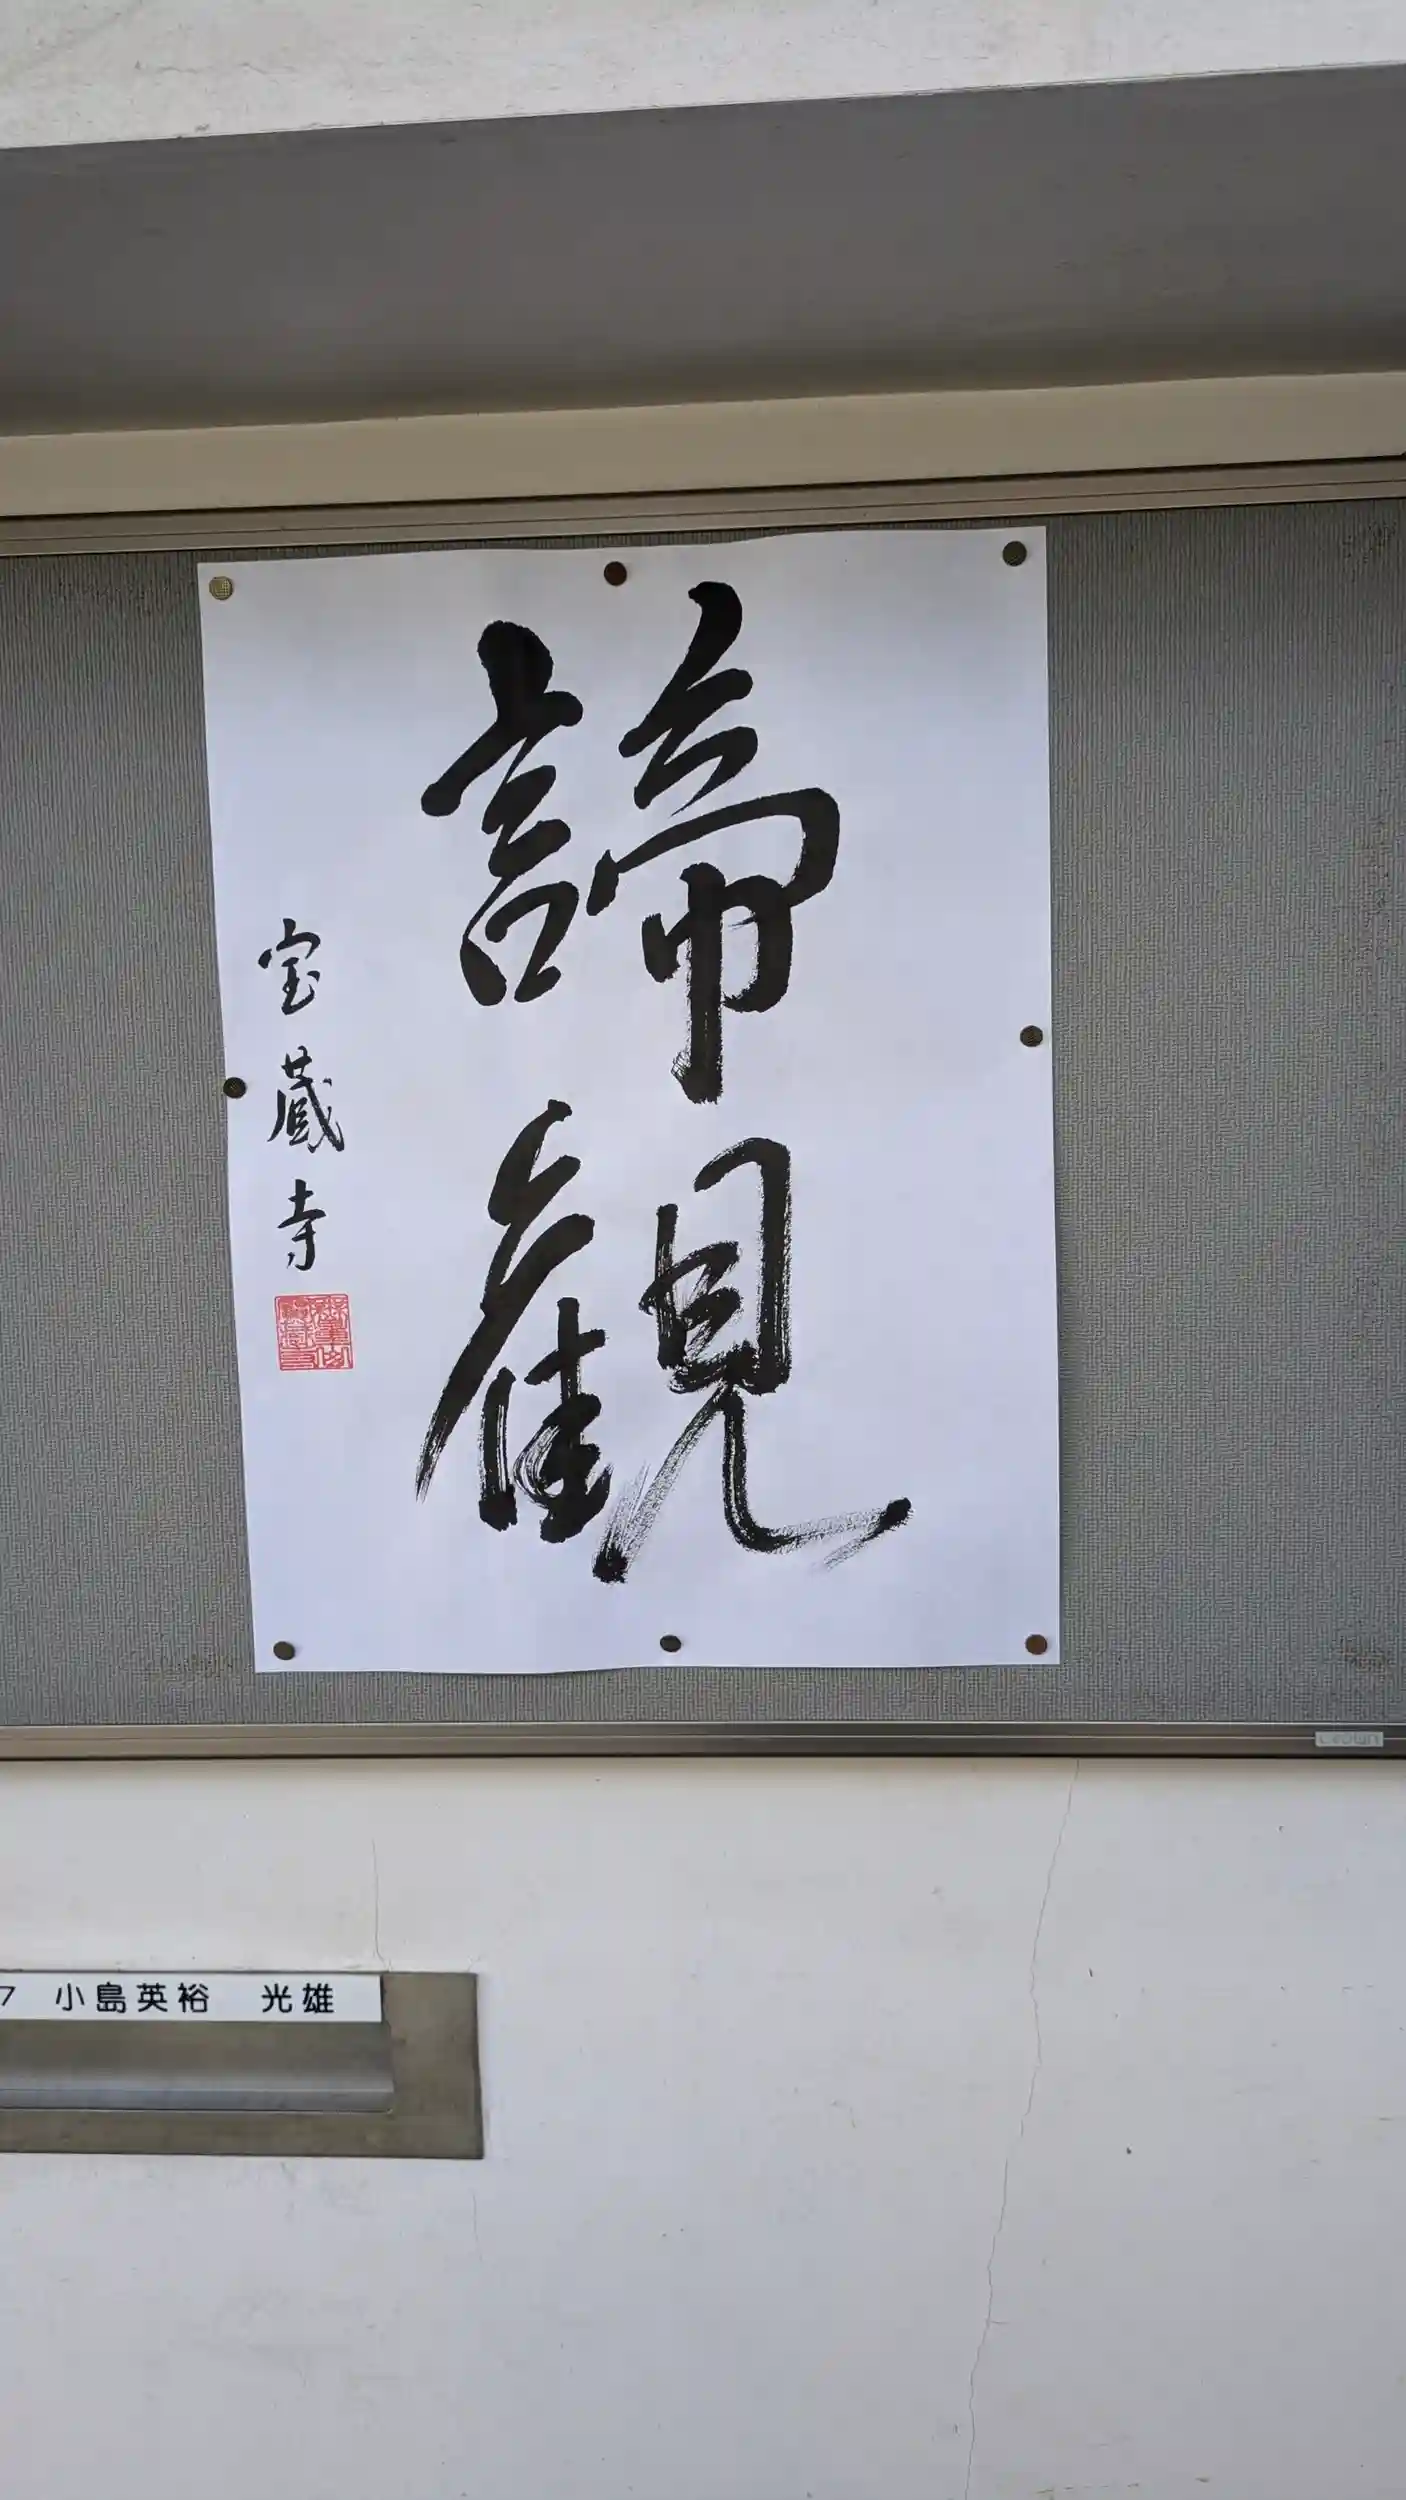 諦観
宝蔵寺
crown
7 小島英裕 光雄